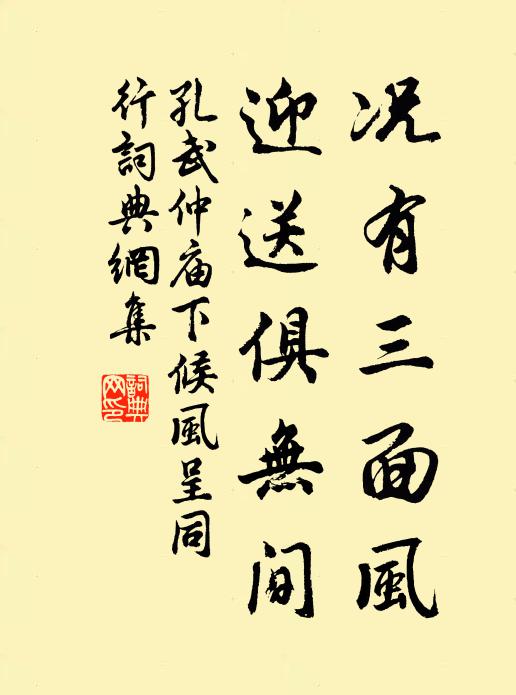 况有三面風
迎送俱無间
孔武仲庙下候風呈同
行詞典網集
詞典
网印